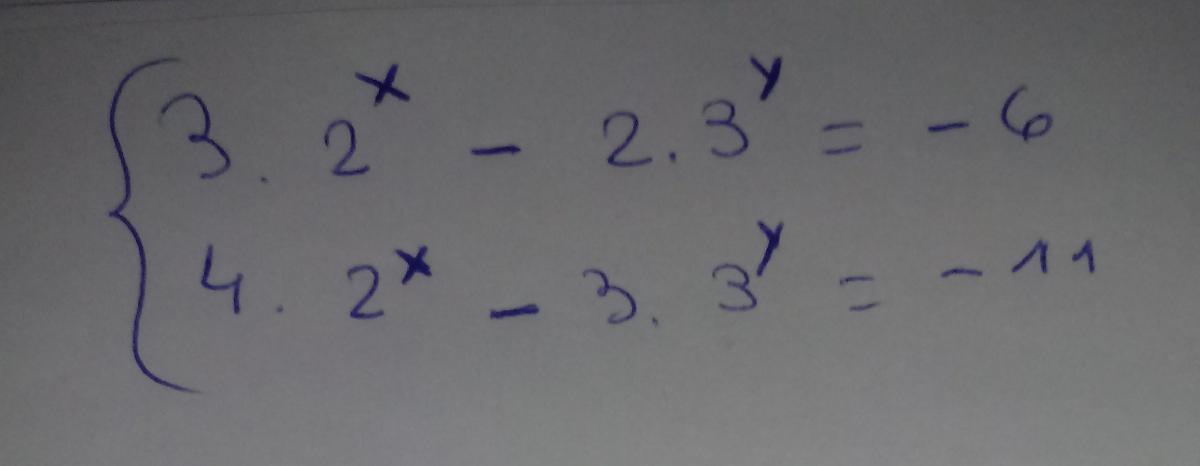 3 . 2^x - 2 . 3^y = - 6
4 . 2^x - 3 . 3^y = - 11